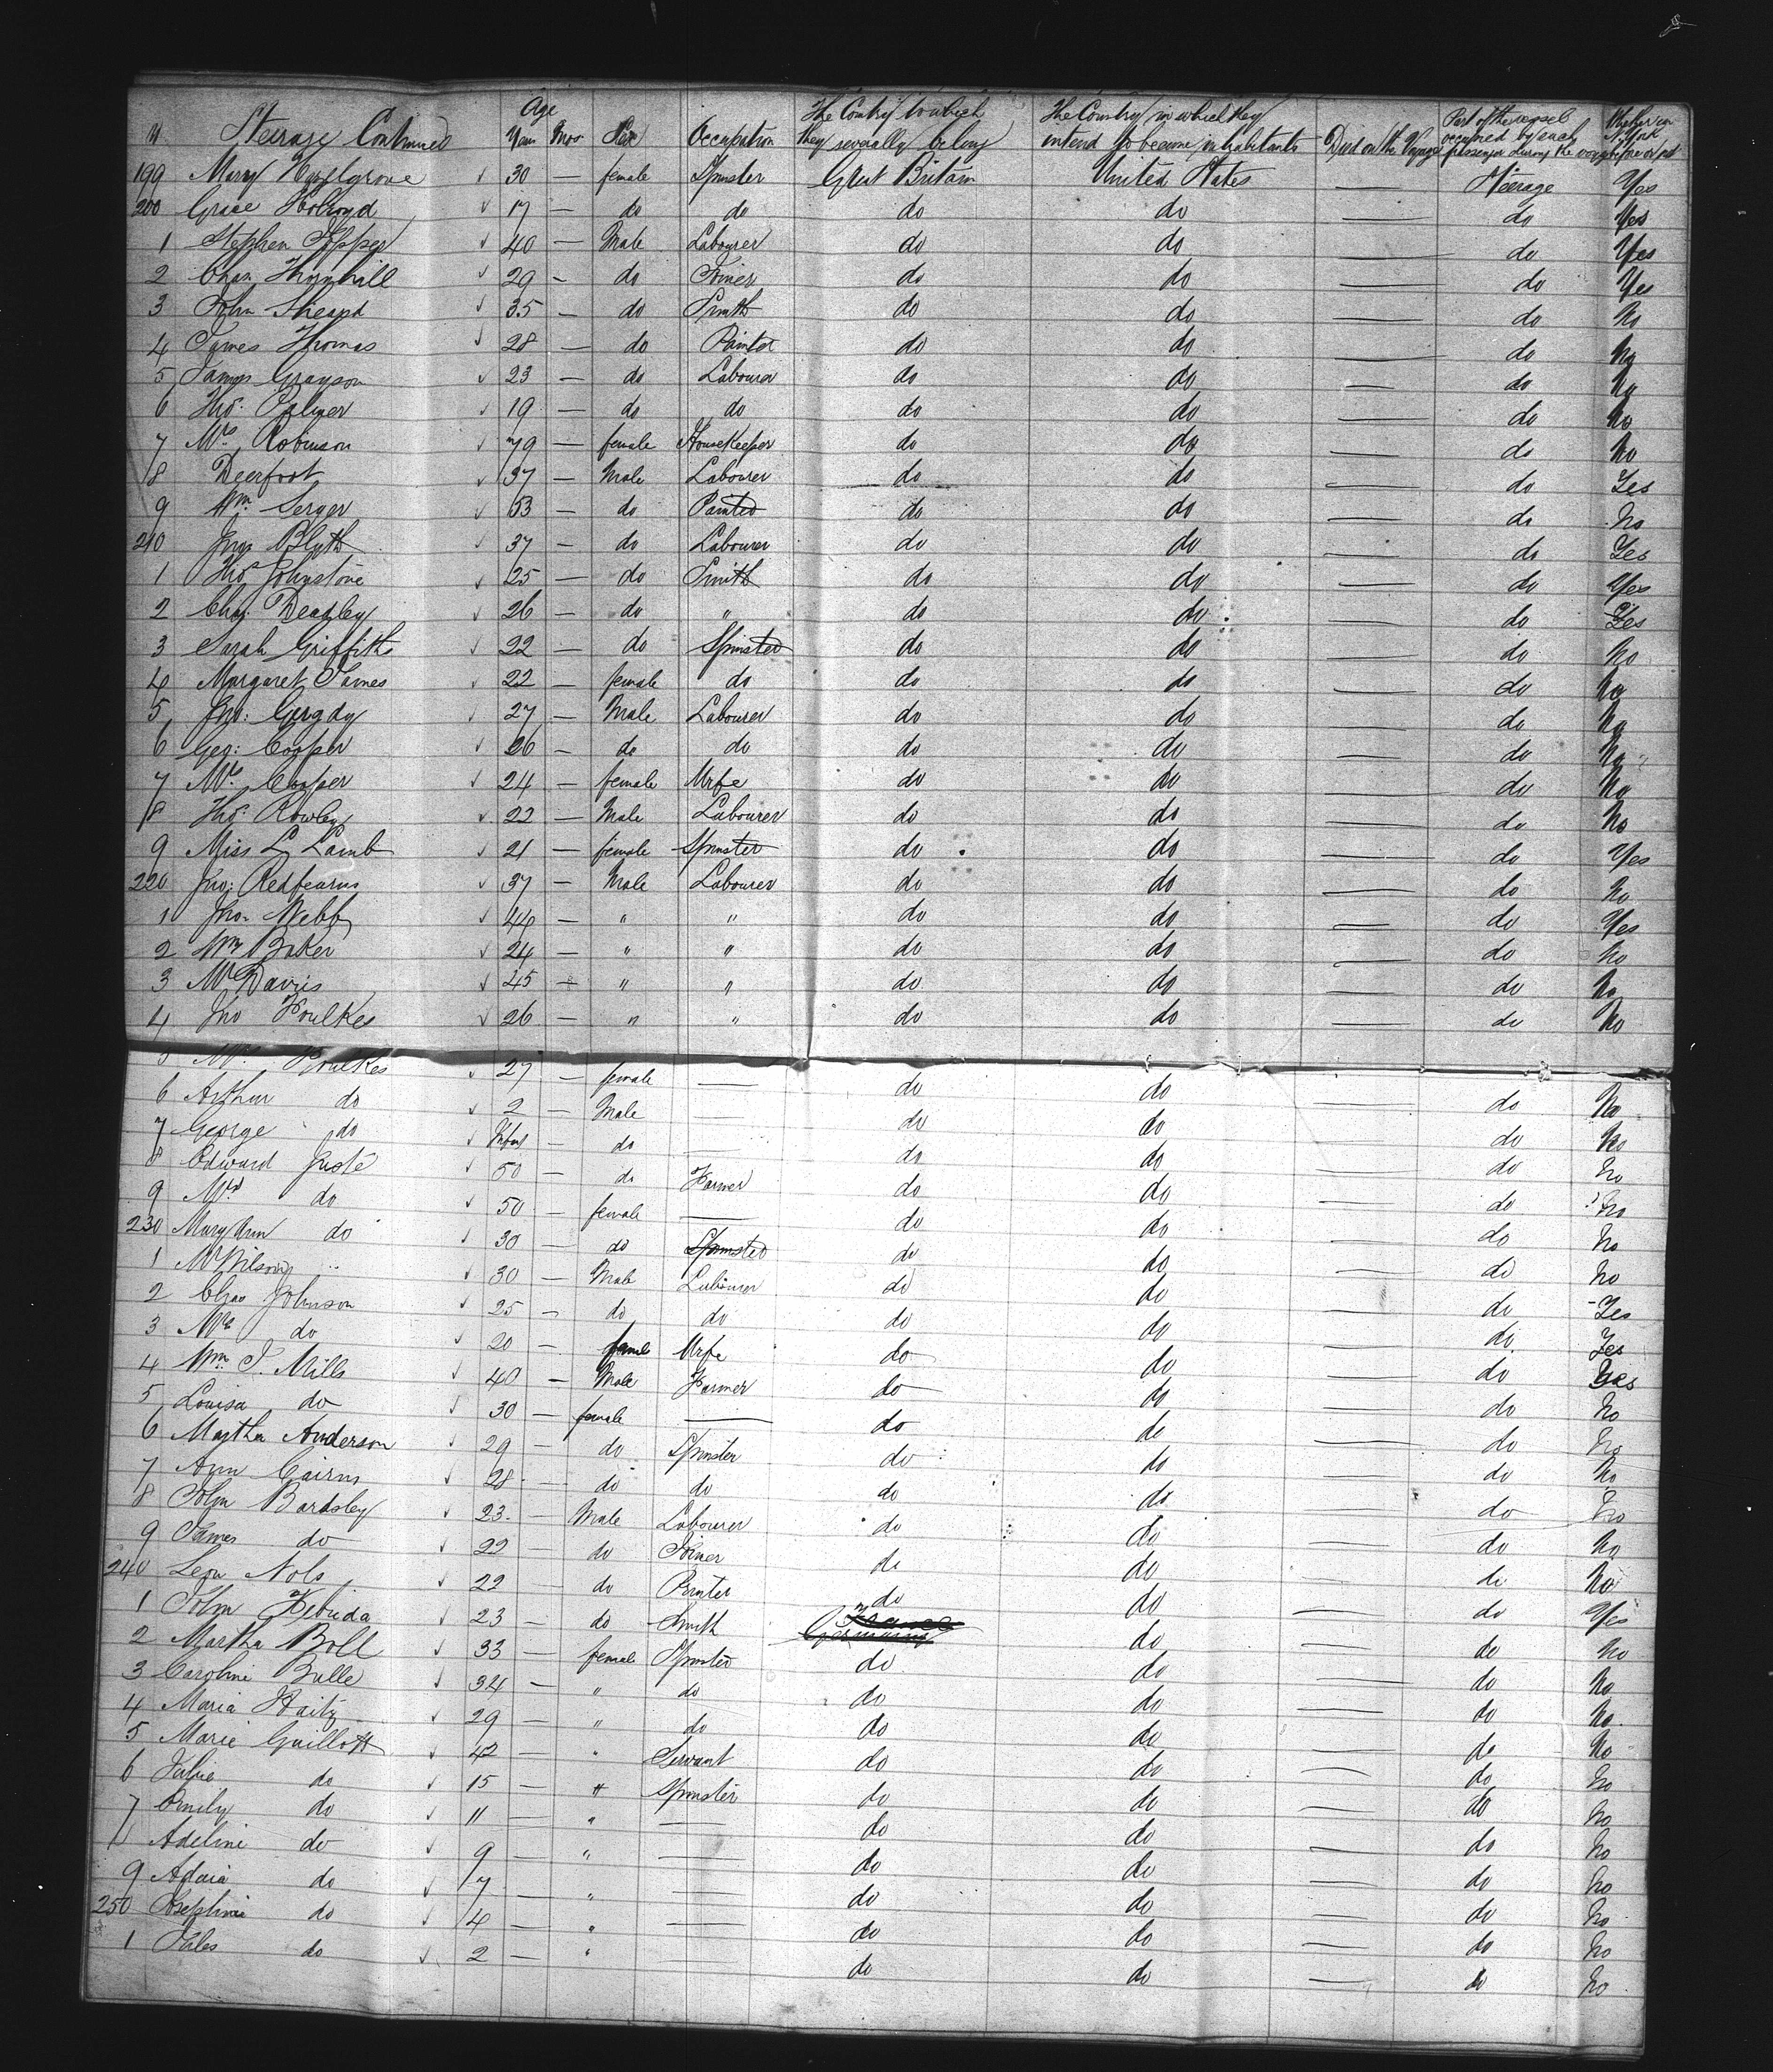 N Steerage Continued Age Years Mos Sex Occupation The Contry to which they severally belong The Country in which they intend to become inhabitants Died on the Voyage Part of the vessel occupied by each passenger during the voyage Whether in N. York before or not
199 Mary 30 — female Spinster Great Britain United States — Steerage Yes
200 Grace Holroyd 17 — do do do do — do Yes
1 Stephen Topper 40 — Male Labourer do do — do Yes
2 Chas. Thornhill 29 — do Joiner do do — do Yes
3 John Sheard 35 — do Smith do do — do No
4 James Thomas 28 — do Painter do do — do No
5 James Grayson 23 — do Labourer do do — do No
6 Tho. Palmer 19 — do do do do — do No
7 Mrs Robinson 79 — female HouseKeeper do do — do No
8 Deerfoot 37 — Male Labourer do do — do Yes
9 Wm Serger 53 — do Painter do do — do No
210 Jno Blyth 37 — do Labourer do do — do Yes
1 Thos Johnstone 25 — do Smith do do — do Yes
2 Chas. Deadley 26 — do " do do — do Yes
3 Sarah Griffiths 22 — do Spinster do do — do No
4 Margaret James 22 — female do do do — do No
5 Jno: 27 — Male Labourer do do — do No
6 Geo: Cooper 26 — do do do do — do No
7 Mrs Cooper 24 — female Wife do do — do No
8 Tho. Rowley 22 — Male Labourer do do — do No
9 Miss L. Lamb 21 — female Spinster do do — do Yes
220 Jno: Redfearns 37 — Male Labourer do do — do No
1 Jno. Webb 44 — " " do do — do Yes
2 Wm Baker 24 — " " do do — do No
3 Mr Davies 45 — " " do do — do No
4 Jno Foulkes 26 — " " do do — do No
5 Mrs Foulkes 27 — female — do do — do No
6 Arthur do 2 — Male — do do — do No
7 George do Infant — do — do do — do No
8 Edward Juste 50 — do Farmer do do — do No
9 Mrs do 50 — female — do do — do No
230 Mary Ann do 30 — do Spinster do do — do No
1 Mr Wilson 30 — Male Labourer do do — do Yes
2 Chas Johnson 25 — do do do do — do Yes
3 Mrs do 20 female Wife do do — do Yes
4 Wm J. Mills 40 — Male Farmer do do — do No
5 Louisa do 30 — female — do do — do No
6 Martha Anderson 29 — do Spinster do do — do No
7 Ann Cairns 28 — do do do do — do No
8 John Bardsley 23 — Male Labourer do do — do No
9 James do 22 — do Joiner do do — do No
240 Leon Nols 22 — do Printer do do — do Yes
1 John 23 — do Smith France Germany do — do No
2 Martha Boll 33 — female Spinster do do — do No
3 Caroline Balle 34 — " do do do — do No
4 Maria Haitz 29 — " do do do — do No
5 Marie Guillott 42 — " Servant do do — do No
6 Julie do 15 — " Spinster do do — do No
7 Emily do 11 — " — do do — do No
8 Adeline do 9 — " — do do — do No
9 do 7 — " — do do — do No
250 Josephine do 4 — " — do do — do No
1 Jules do 2 — " — do do — do No